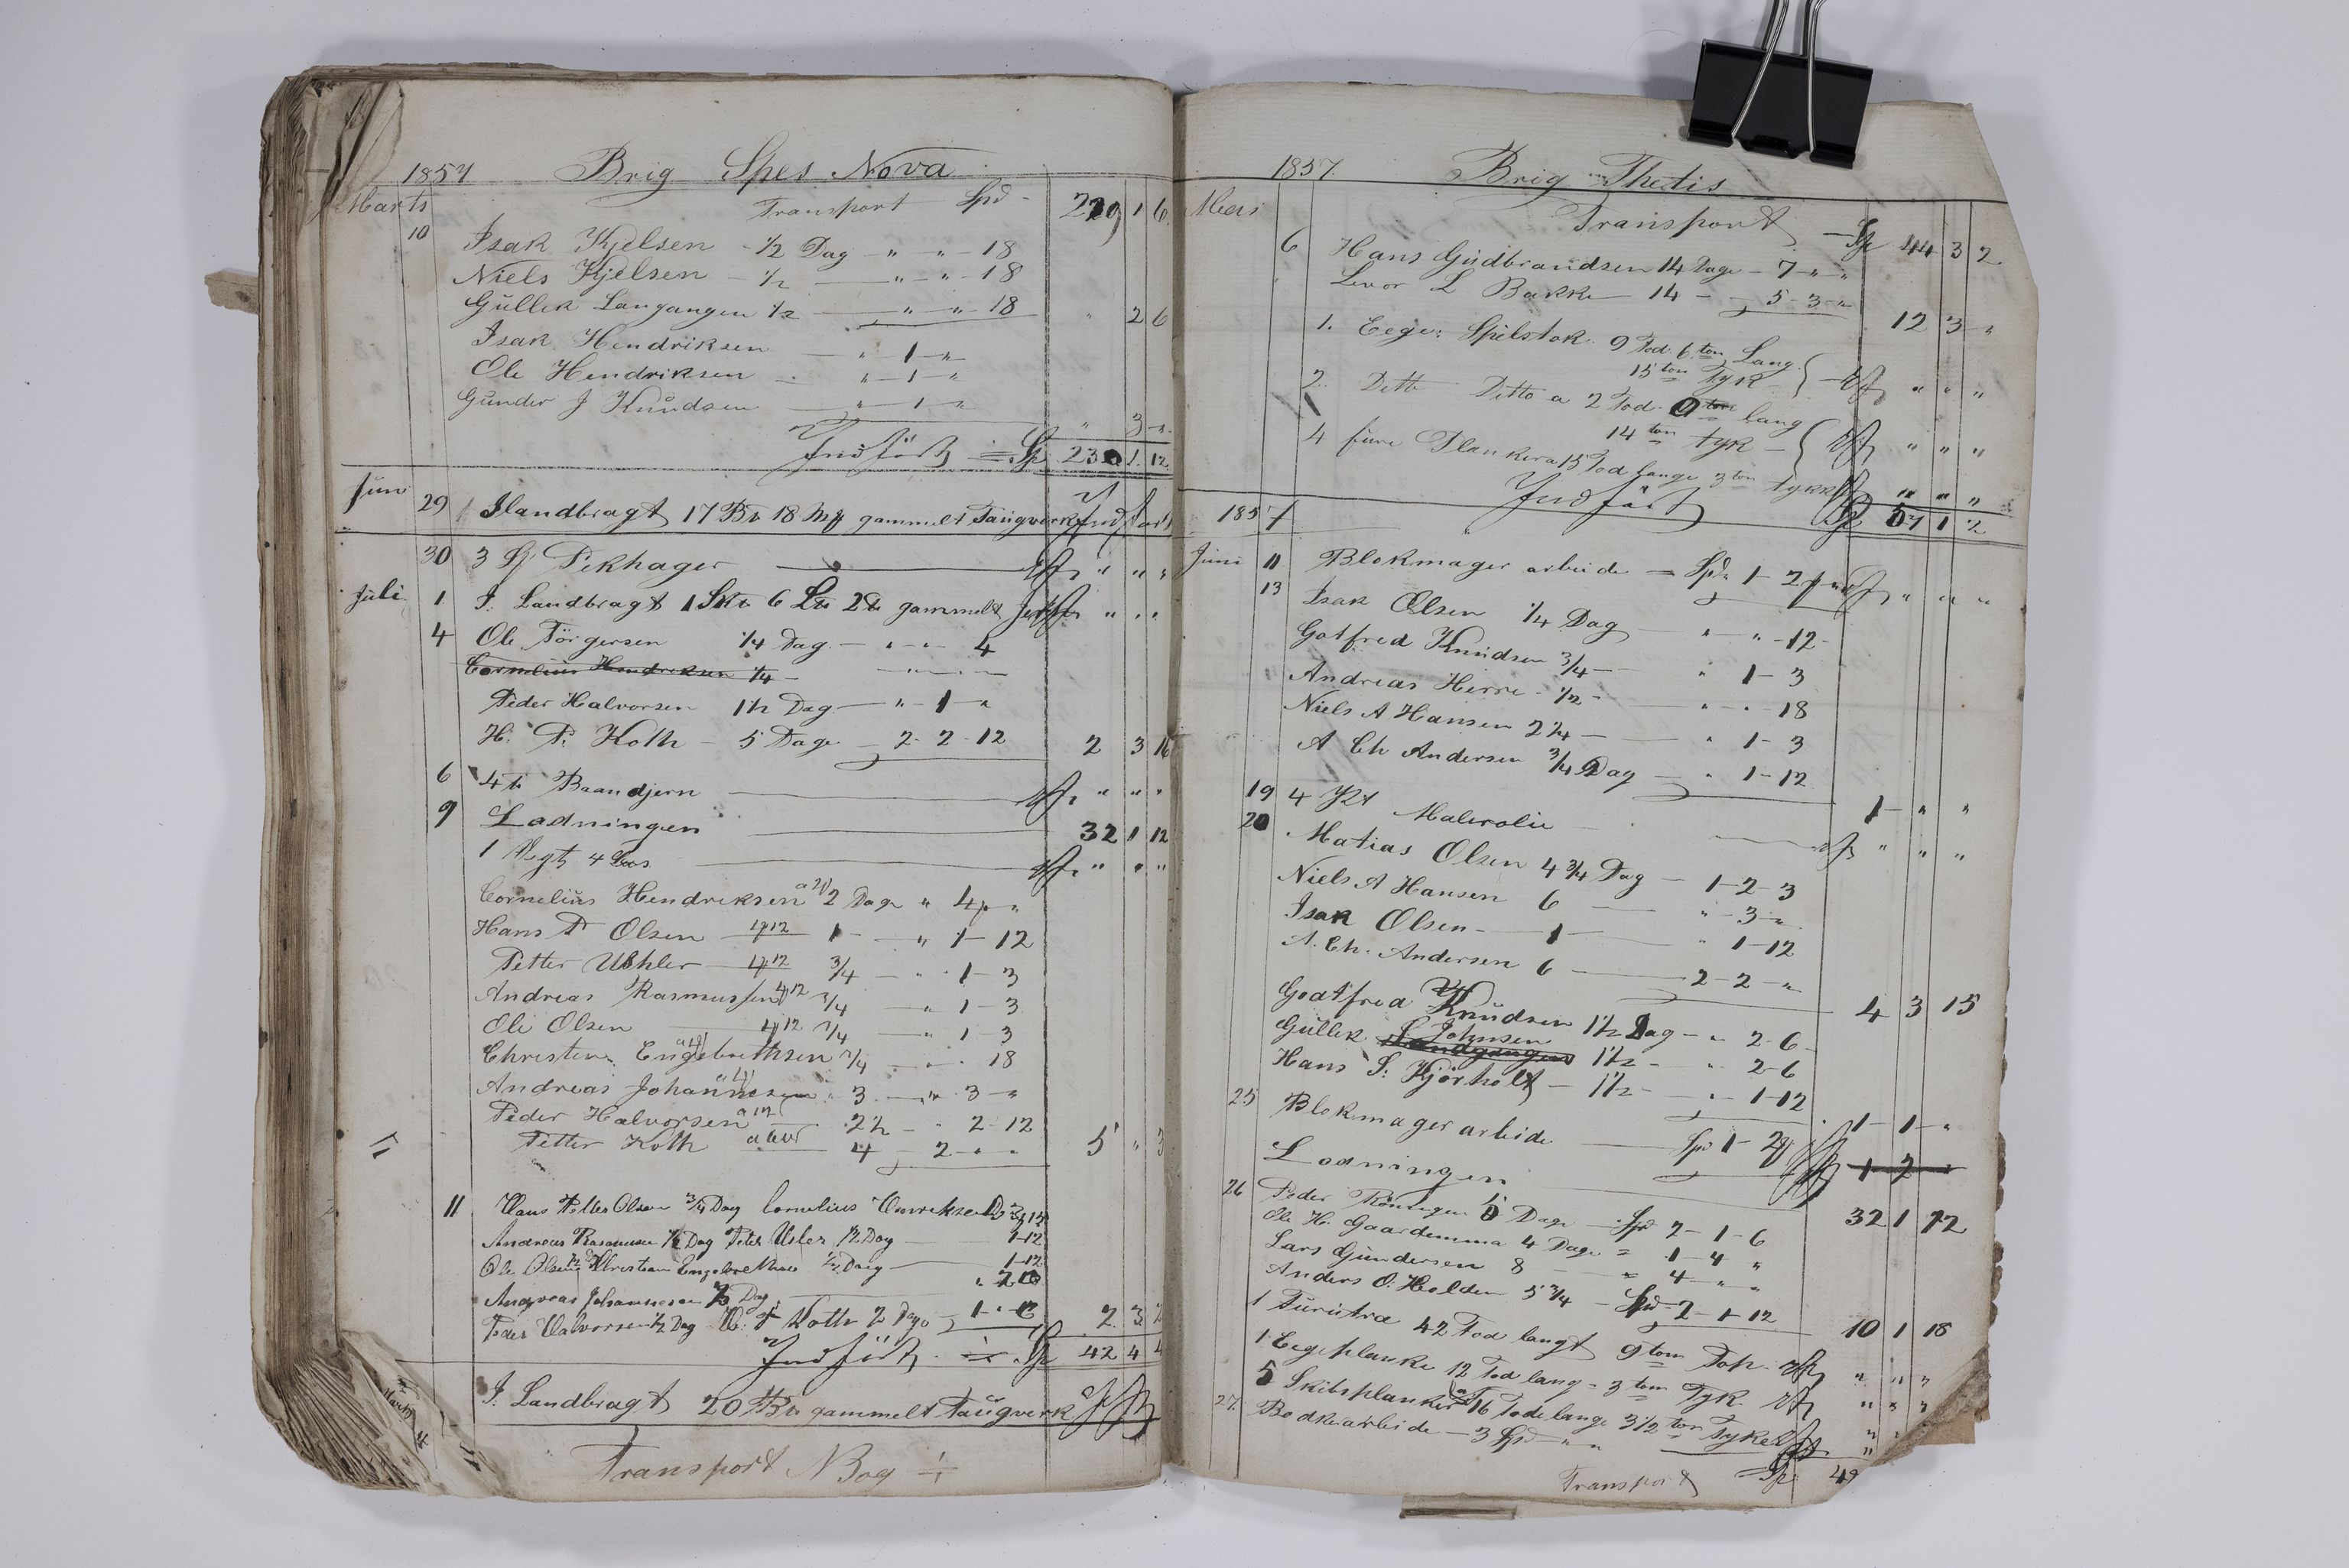 1857 Brig Spes Nova
Marts Transport Spd 229 1 6
10 Isak Kjelsen 1/2 Dag " " 18
Niels Kjelsen 1/2 " " 18
Gullek Langangen 1/2 " " 18 " 2 6
Isak Hendriksen " 1 "
Ole Hendriksen " 1 "
Gunder J Knudsen " 1 " " 3 "
Indført Sp 230 1 12
Juni 29 Ilandbragt 17 18 gammelt Taugverk Indført
30 3 Pikhager " " "
Juli 1 I Landbragt 1 6 2 gammelt " " "
4 Ole Törgersen 1/4 Dag " " 4
Cornelius Hendriksen 1/4
Peder Halvorsen 1 1/2 Dag " 1 "
H. P. Koth 5 Dage 2 2 12 2 3 16
6 4 Baandjern " " "
9 Ladningen 32 1 12
1 Vegt 4 " " "
Cornelius Hendriksen 2 Dage " 4 "
Hans P Olsen 1 " 1 12
Petter Ushler 3/4 " 1 3
Andreas Rasmussen 3/4 " 1 3
Ole Olsen 3/4 " 1 3
Christen Engebrethsen 3/4 " " 18
Andreas Johannesen 3 " 3 "
Peder Halvorsen 2 1/2 " 2 12
Petter Koth 4 2 " " 5 " 3
11 Hans Petter Olsen 3/4 Dag Cornelius
Andreas Rasmussen 1/2 Dag Peter Usler 1/2 Dag 1-12
Ole Olsen 1/2 Christian 1/2 Dag 1-12
Andreas Johannesen Dag
Peder Halvorsen 1/2 Dag H. P Koth 2 Dage 2 3
Indført Sp 42 4 4
I. Landbragt 20 gammelt Taugverk
Transport N Bog
1857. Brig Thetis
Mars Transport Sp 44 3 2
6 Hans Gudbrandsen 14 Dage 7 " "
Levor L Bakke 14 5 3 " 12 3 "
1. Eege Spilstok 9 Fod 6 tom Lang
15 tom Tyk " " "
2. Dett Ditto a 2 Fod 9 tom lang
14 tom tyk " " "
4 fure Plankera 15 Fod lange 3 tom tykk " " "
Indført Sp 57 1 2
1857
Juni 11 Blokmager arbeide Spd 1 2 " " "
13 Isak Olsen 1/4 Dag " " 12
Gotfred Knudsen 3/4 " 1 3
Andreas Herre 1/2 " " 18
Niels A Hansen 2 1/4 " 1 3
A Ch Andersen 3/4 Dag " 1 12 1 " "
19 4 Malerolie " " "
20 Matias Olsen 4 3/4 Dag 1 2 3
Niels A Hansen 6 " 3 "
Isak Olsen 1 " 1 12
A. Ch. Andersen 6 2 2 " 4 3 15
Godtfred Knudsen 1 1/2 Dag " 2 6
Gullek Johnsen 1 1/2 " 2 6
Hans S. Kjörholt 1 1/2 " 1 12 1 1 "
25 Blokmager arbeide Spd 1 2 1 2
Ladningen 32 1 12
26 Peder Röningen 5 Dage Spd 2 1 6
Ole H. Gaardemma 4 Dage 1 4 "
Lars Gundersen 8 4 " "
Anders O. Holden 5 3/4 Spd 2 1 12 10 1 18
1 Furutra 42 Fod langt 9 tom Top " " "
1 Eegeplanke 12 Fod lang 3 tom Tyk " " "
5 Skibsplanker a 16 Fode lange 3 1/2 tom Tyke "
27 Bodkerarbeide 3 Spd " " "
Transport Sp 49